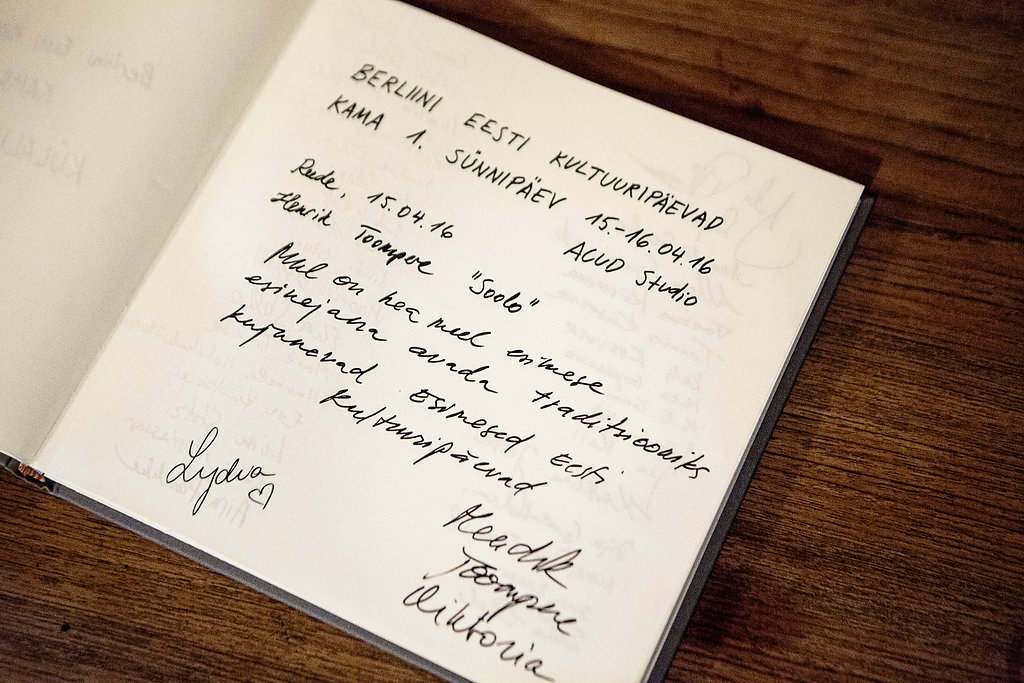 BERLIINI EESTI KULTUURIPÄEVAD
KAMA 1. SÜNNIPÄEV 15.-16.04.16
ACUD Studio
Reede, 15.04.16
Henrik Toompere "Soolo"
Mul on hea meel esimese
esinejana avada traditsiooniks
kujunevad Esimesed Eesti
kultuuripäevad
Lydia
Hendrik
Toompere
Viktoria